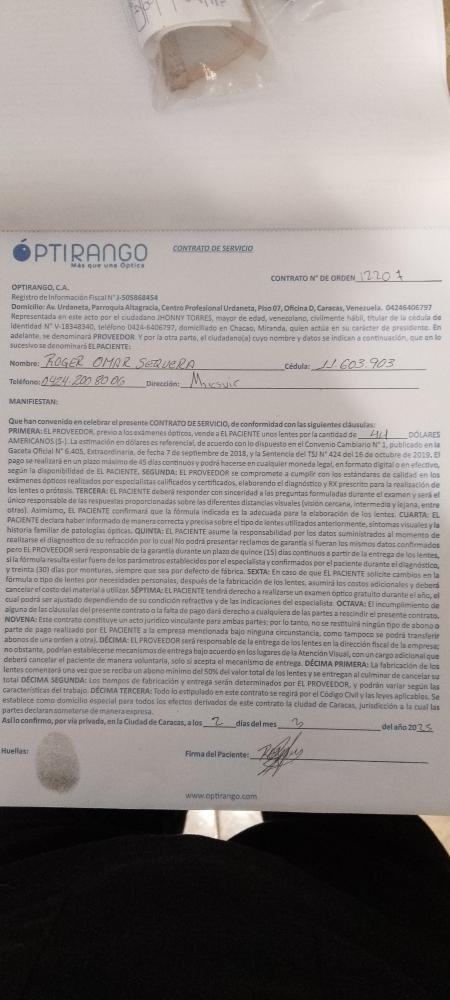 ÓPTIRANGO
Más que una Óptica
CONTRATO DE SERVICIO
CONTRATO N° DE ORDEN 12207
OPTIRANGO, C.A.
Registro de Información Fiscal N° J-505868454
Domicilio: Av. Urdaneta, Parroquia Altagracia, Centro Profesional Urdaneta, Piso 07, Oficina D, Caracas, Venezuela. 04246406797
Representada en este acto por el ciudadano JHONNY TORRES, mayor de edad, venezolano, civilmente hábil, titular de la cédula de
identidad N° V-18348340, teléfono 0424-6406797, domiciliado en Chacao, Miranda, quien actúa en su carácter de presidente. En
adelante, se denominará EL PROVEEDOR. Y por la otra parte, el ciudadano(a) cuyo nombre y datos se indican a continuación, que en lo
sucesivo se denominará EL PACIENTE:
Nombre: ROGER OMAR SEQUERA Cédula: 11 603.903
Teléfono: 0424 200 80 06 Dirección:
MANIFIESTAN:
Que han convenido en celebrar el presente CONTRATO DE SERVICIO, de conformidad con las siguientes cláusulas:
PRIMERA: EL PROVEEDOR, previo a los exámenes ópticos, vende a EL PACIENTE unos lentes por la cantidad de 44 DÓLARES
AMERICANOS ($-). La estimación en dólares es referencial, de acuerdo con lo dispuesto en el Convenio Cambiario N° 1, publicado en la
Gaceta Oficial N° 6.405, Extraordinaria, de fecha 7 de septiembre de 2018, y la Sentencia del TSJ N° 424 del 16 de octubre de 2019. El
pago se realizará en un plazo máximo de 45 días continuos y podrá hacerse en cualquier moneda legal, en formato digital o en efectivo,
según la disponibilidad de EL PACIENTE. SEGUNDA: EL PROVEEDOR se compromete a cumplir con los estándares de calidad en los
exámenes ópticos realizados por especialistas calificados y certificados, elaborando el diagnóstico y RX prescrito para la realización de
los lentes o prótesis. TERCERA: EL PACIENTE deberá responder con sinceridad a las preguntas formuladas durante el examen y será el
único responsable de las respuestas proporcionadas sobre las diferentes distancias visuales (visión cercana, intermedia y lejana, entre
otras). Asimismo, EL PACIENTE confirmará que la fórmula indicada es la adecuada para la elaboración de los lentes. CUARTA: EL
PACIENTE declara haber informado de manera correcta y precisa sobre el tipo de lentes utilizados anteriormente, síntomas visuales y la
historia familiar de patologías ópticas. QUINTA: EL PACIENTE asume la responsabilidad por los datos suministrados al momento de
realizarse el diagnostico de su refracción por lo cual No podrá presentar reclamos de garantía si fueran los mismos datos confirmados
pero EL PROVEEDOR será responsable de la garantía durante un plazo de quince (15) días continuos a partir de la entrega de los lentes,
si la fórmula resulta estar fuera de los parámetros establecidos por el especialista y confirmados por el paciente durante el diagnóstico,
y treinta (30) días por monturas, siempre que sea por defecto de fábrica. SEXTA: En caso de que EL PACIENTE solicite cambios en la
fórmula o tipo de lentes por necesidades personales, después de la fabricación de los lentes, asumirá los costos adicionales y deberá
cancelar el costo del material a utilizar. SÉPTIMA: EL PACIENTE tendrá derecho a realizarse un examen óptico gratuito durante el año, el
cual podrá ser ajustado dependiendo de su condición refractiva y de las indicaciones del especialista. OCTAVA: El incumplimiento de
alguna de las cláusulas del presente contrato o la falta de pago dará derecho a cualquiera de las partes a rescindir el presente contrato.
NOVENA: Este contrato constituye un acto jurídico vinculante para ambas partes; por lo tanto, no se restituirá ningún tipo de abono o
parte de pago realizado por EL PACIENTE a la empresa mencionada bajo ninguna circunstancia, como tampoco se podrá transferir
abonos de una orden a otra). DÉCIMA: EL PROVEEDOR será responsable de la entrega de los lentes en la dirección fiscal de la empresa;
no obstante, podrían establecerse mecanismos de entrega bajo acuerdo en los lugares de la Atención Visual, con un cargo adicional que
deberá cancelar el paciente de manera voluntaria, solo si acepta el mecanismo de entrega. DÉCIMA PRIMERA: La fabricación de los
lentes comenzará una vez que se reciba un abono mínimo del 50% del valor total de los lentes y se entregan al culminar de cancelar su
total DÉCIMA SEGUNDA: Los tiempos de fabricación y entrega serán determinados por EL PROVEEDOR, y podrán variar según las
características del trabajo. DÉCIMA TERCERA: Todo lo estipulado en este contrato se regirá por el Código Civil y las leyes aplicables. Se
establece como domicilio especial para todos los efectos derivados de este contrato la ciudad de Caracas, jurisdicción a la cual las
partes declaran someterse de manera expresa.
Así lo confirmo, por vía privada, en la Ciudad de Caracas, a los 2 días del mes 3 del año 2025
Huellas:
Firma del Paciente:
www.optirango.com